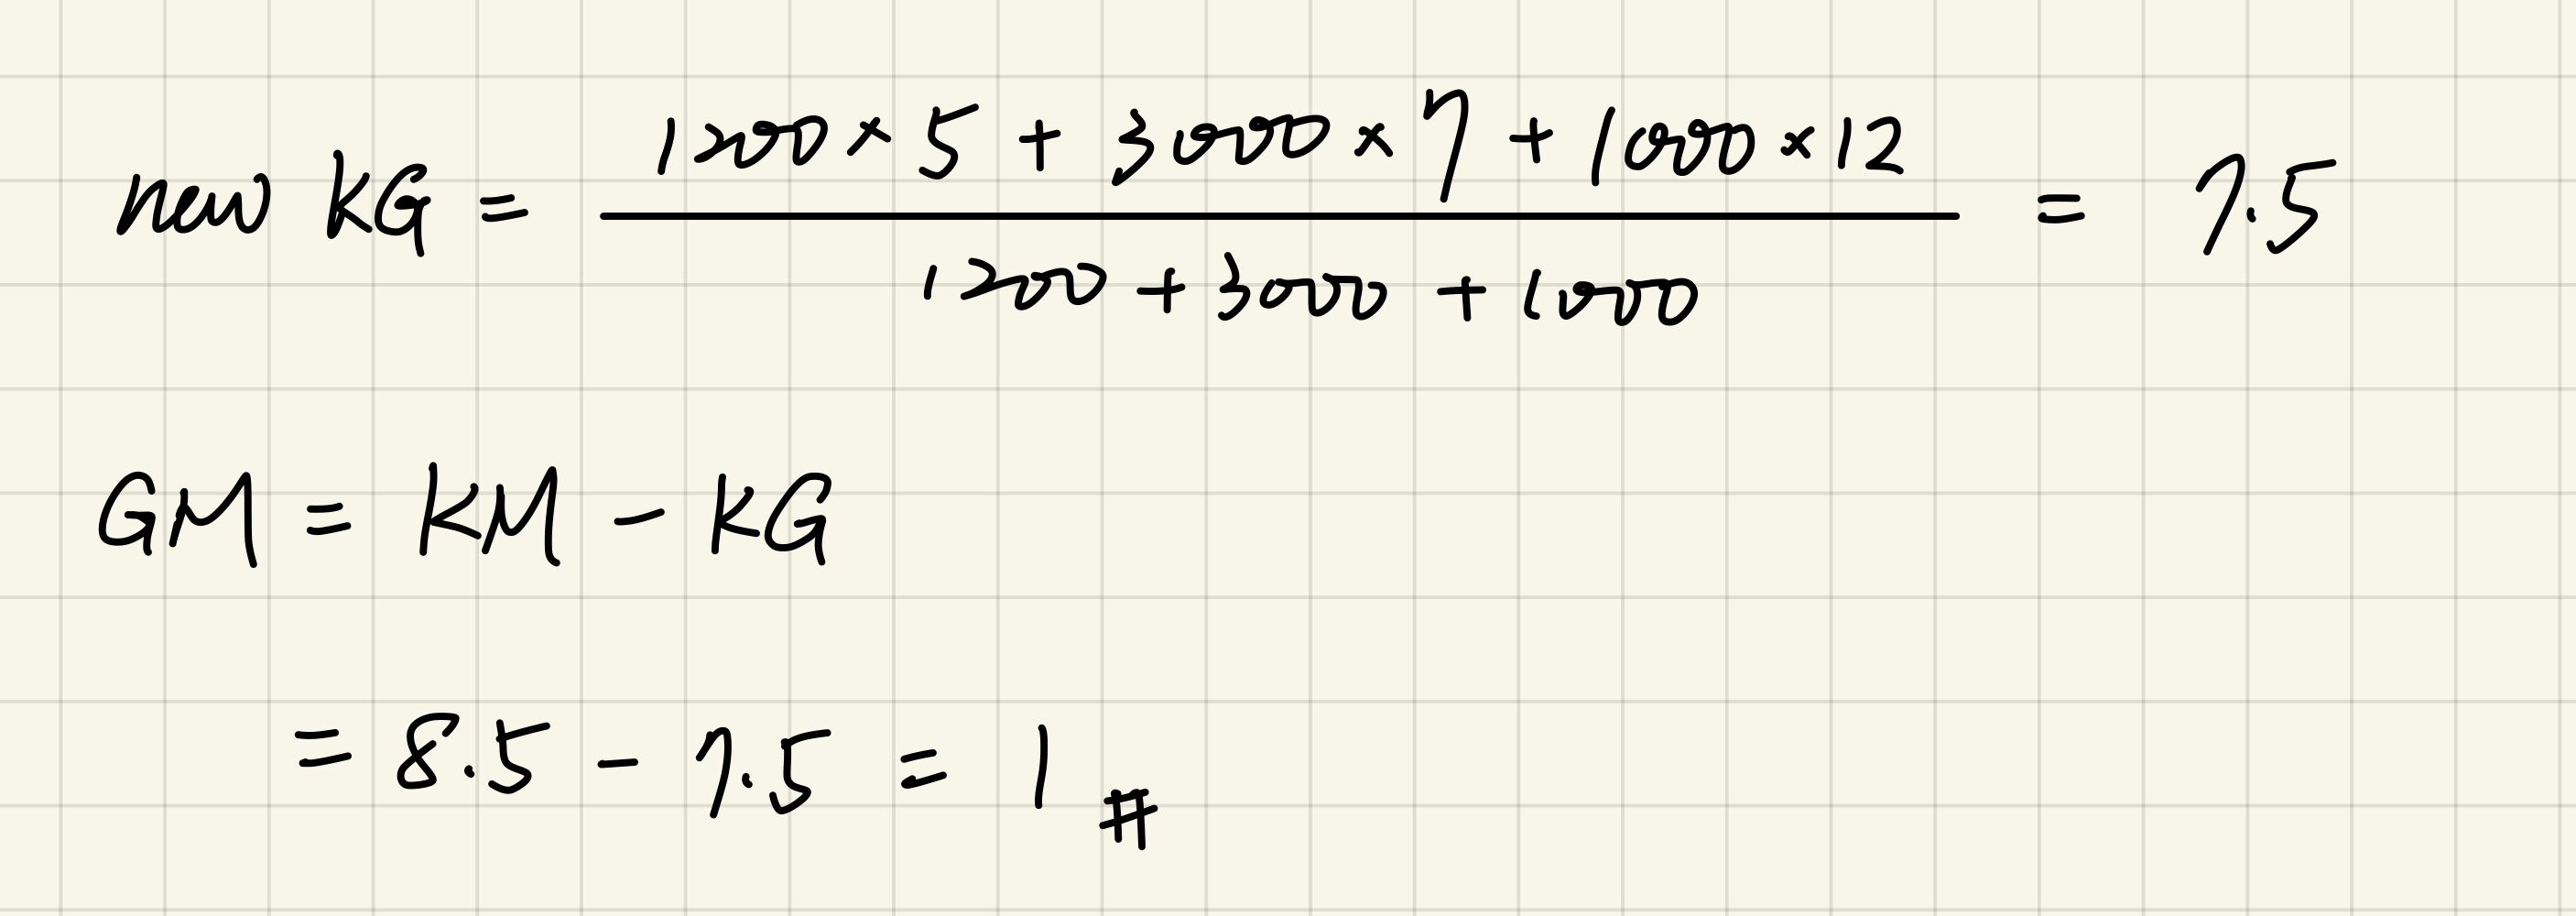 new KG = (1200 × 5 + 3000 × 7 + 1000 × 12) / (1200 + 3000 + 1000) = 7.5
GM = KM - KG
= 8.5 - 7.5 = 1 #